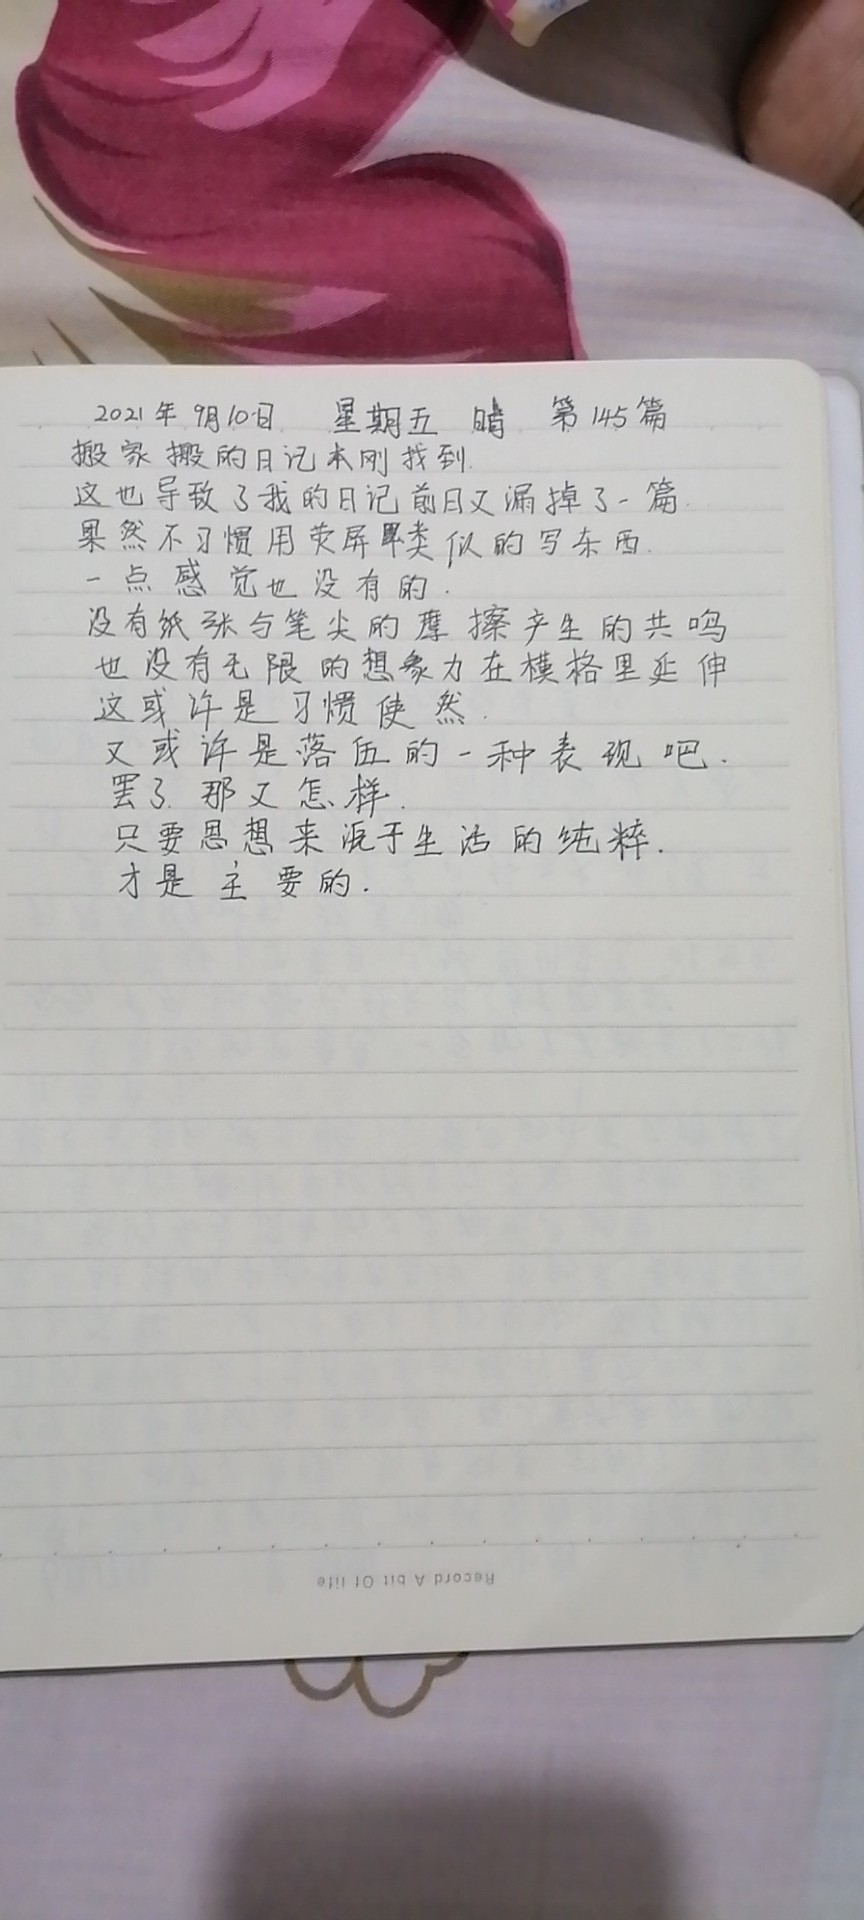 2021年 9月10日 星期五 晴 第145篇
搬家搬的日记本刚找到.
这也导致了我的日记前日又漏掉了一篇.
果然不习惯用荧屏类似的写东西.
一点感觉也没有的.
没有纸张与笔尖的摩擦产生的共鸣
也没有无限的想象力在模格里延伸
这或许是习惯使然.
又或许是落伍的一种表现吧.
罢了.那又怎样.
只要思想来源于生活的纯粹.
才是主要的.
Record A bit Of life